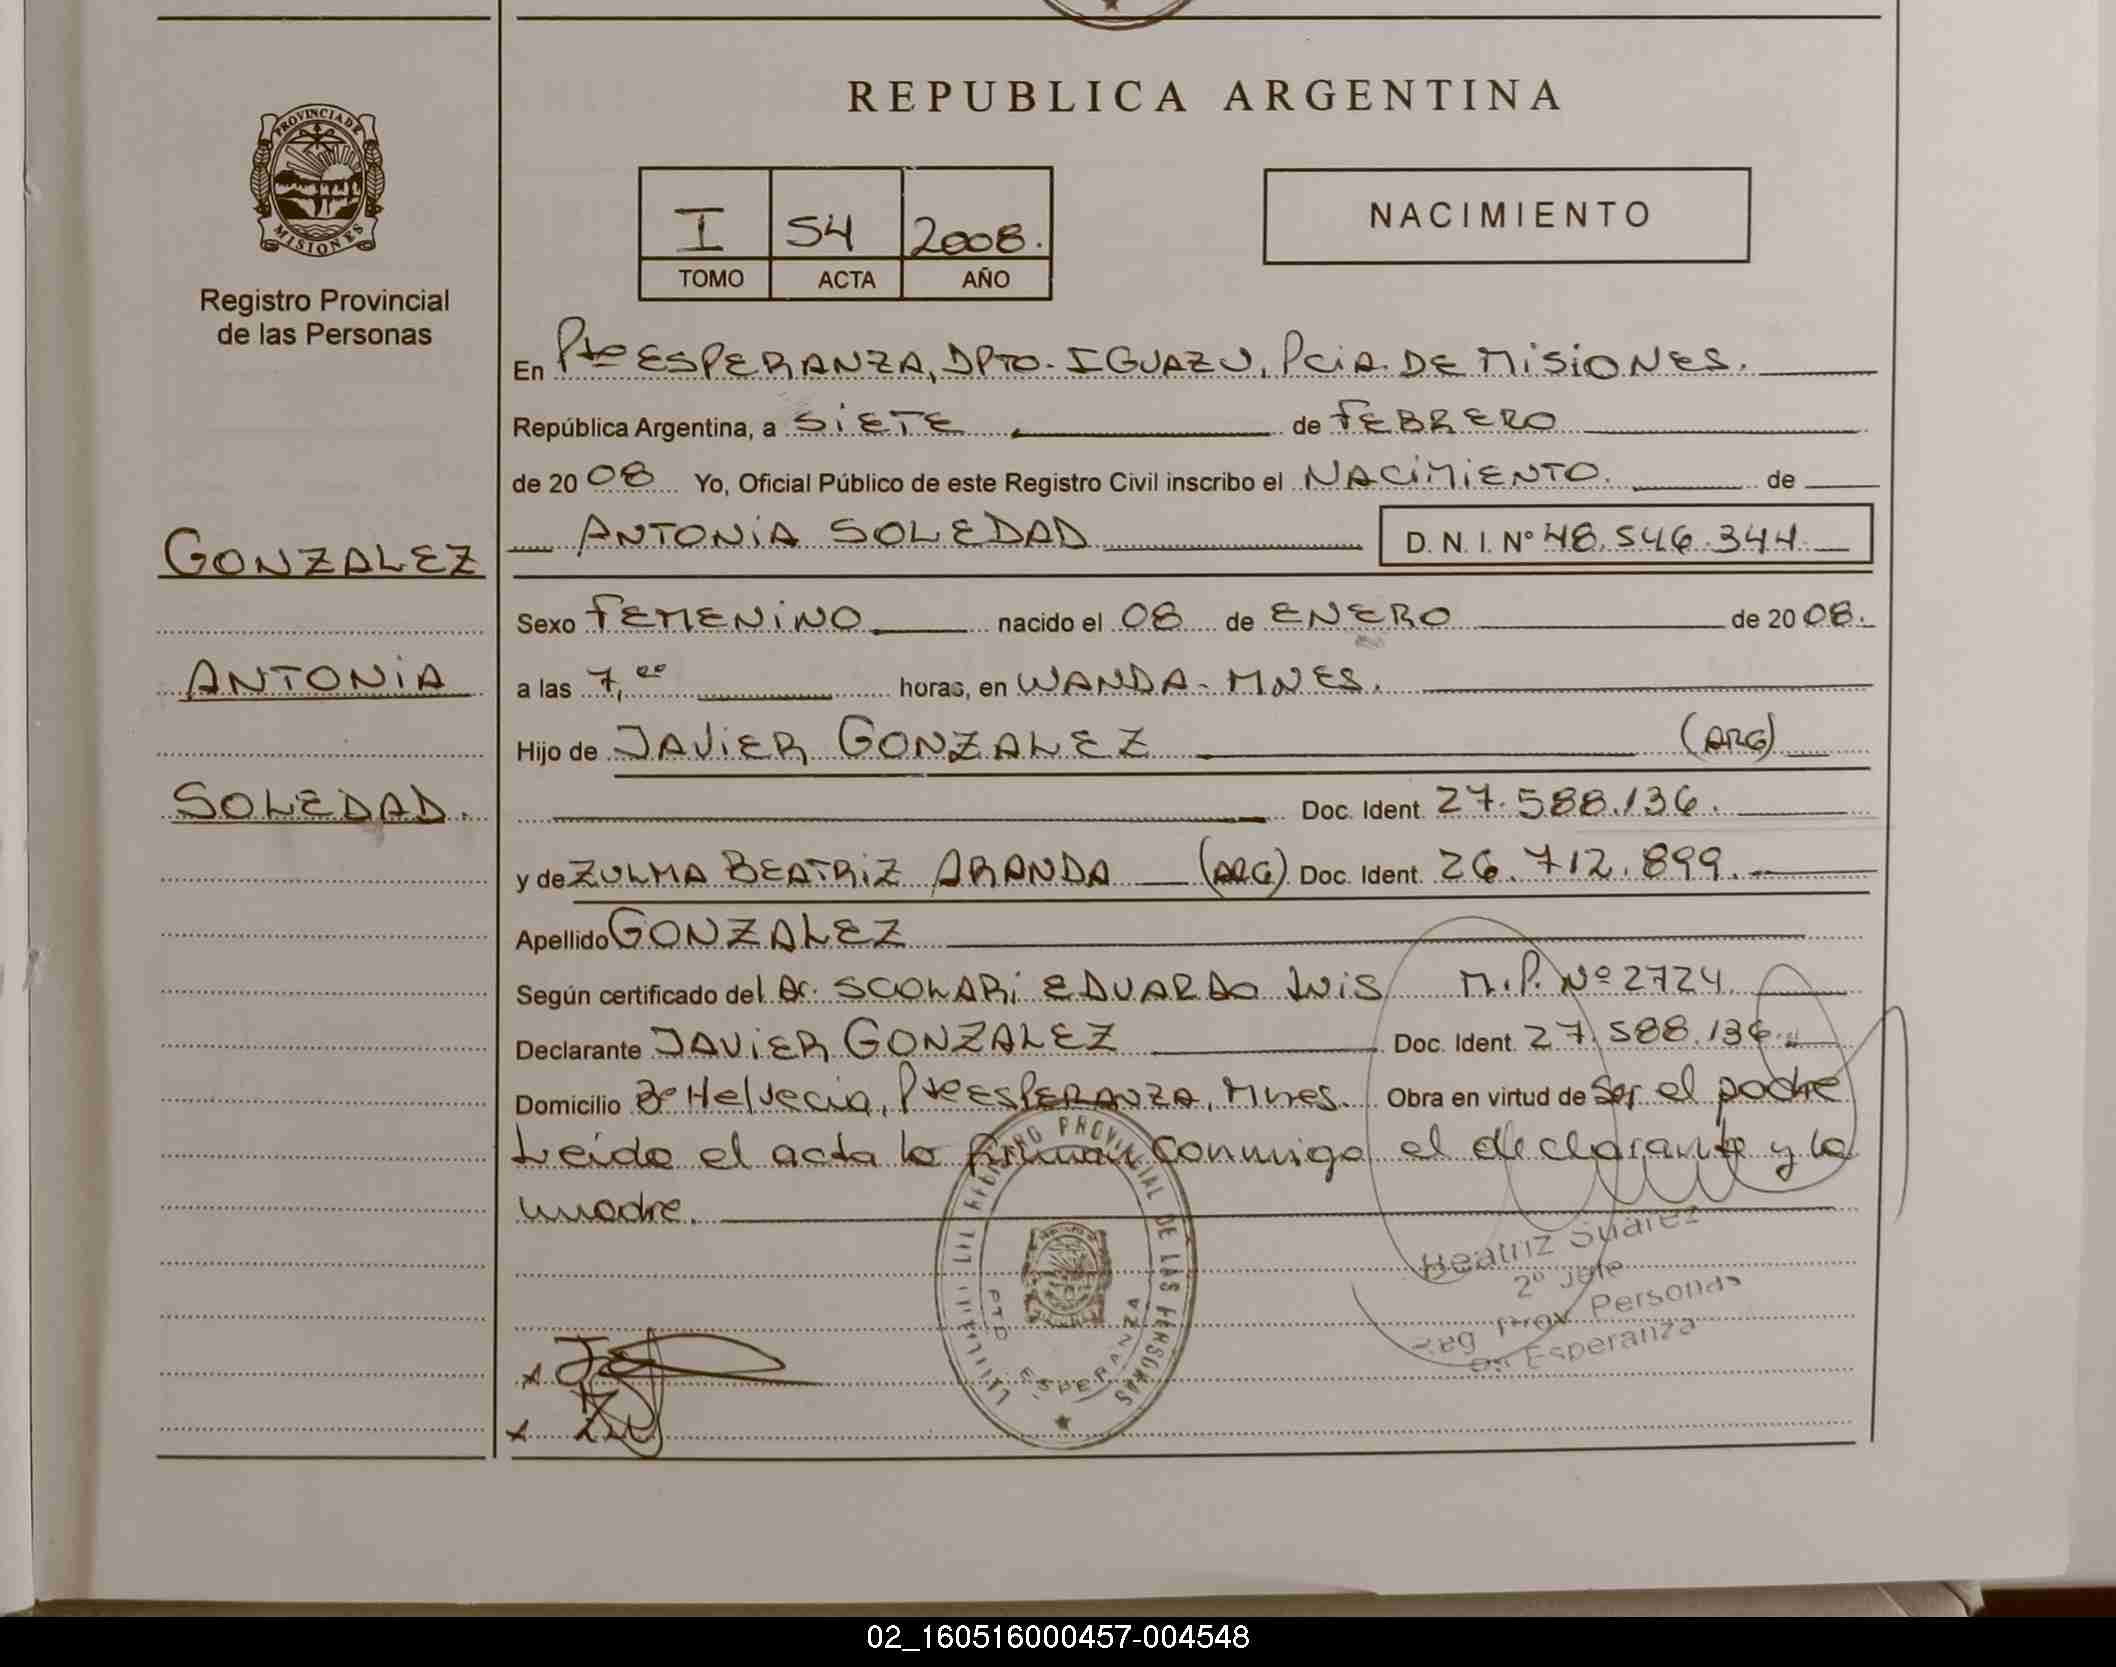 REPUBLICA ARGENTINA
PROVINCIA DE
MISIONES
Registro Provincial
de las Personas
I 54 2008.
TOMO ACTA AÑO
NACIMIENTO
En Pto ESPERANZA, DPTO. IGUAZU, PCIA. DE MISIONES.
República Argentina, a SIETE de FEBRERO
de 2008 Yo, Oficial Público de este Registro Civil inscribo el NACIMIENTO. de
GONZALEZ
ANTONIA
SOLEDAD.
ANTONIA SOLEDAD D. N. I. Nº 48.546.344
Sexo FEMENINO nacido el 08 de ENERO de 2008.
a las 7,00 horas, en WANDA - MNES.
Hijo de JAVIER GONZALEZ (ARG)
Doc. Ident. 27.588.136.
y de ZULMA BEATRIZ ARANDA (ARG) Doc. Ident. 26.712.899.
Apellido GONZALEZ
Según certificado del Dr. SCOLARI EDUARDO LUIS M.P. Nº 2724
Declarante JAVIER GONZALEZ Doc. Ident. 27.588.136.
Domicilio Bº Helvecia, Pto ESPERANZA, Mnes. Obra en virtud de ser el padre
Leida el acta la firman conmigo el declarante y la
madre.
REGISTRO PROVINCIAL DE LAS PERSONAS
PTO ESPERANZA
Beatriz Suarez
2º Jefe
Reg Prov Personas
Esperanza
02_160516000457-004548